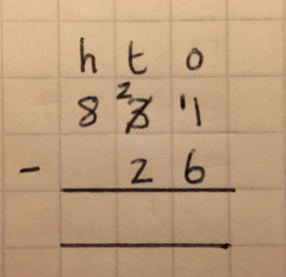 h t o
8 ²3 ¹1
- 2 6